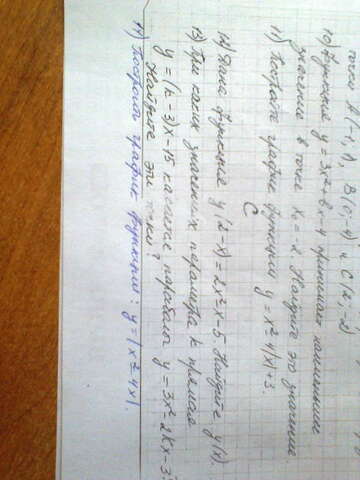 точки А(-1; 1), В(0; -4) и С(2; -2)
10) Функция y = 3x² + bx - 4 принимает наименьшее
значение в точке x₀ = -2. Найдите это значение.
11) Постройте график функции y = x² - 4|x| + 3.
С
12) Дана функция y(2-x) = 2x² - x - 5. Найдите y(x).
13) При каких значениях параметра k прямая
y = (k-3)x - 15 касается параболы y = 3x² - 2kx - 3?
Найдите эти точки?
14) Построить график функции: y = |x² - 4x|.